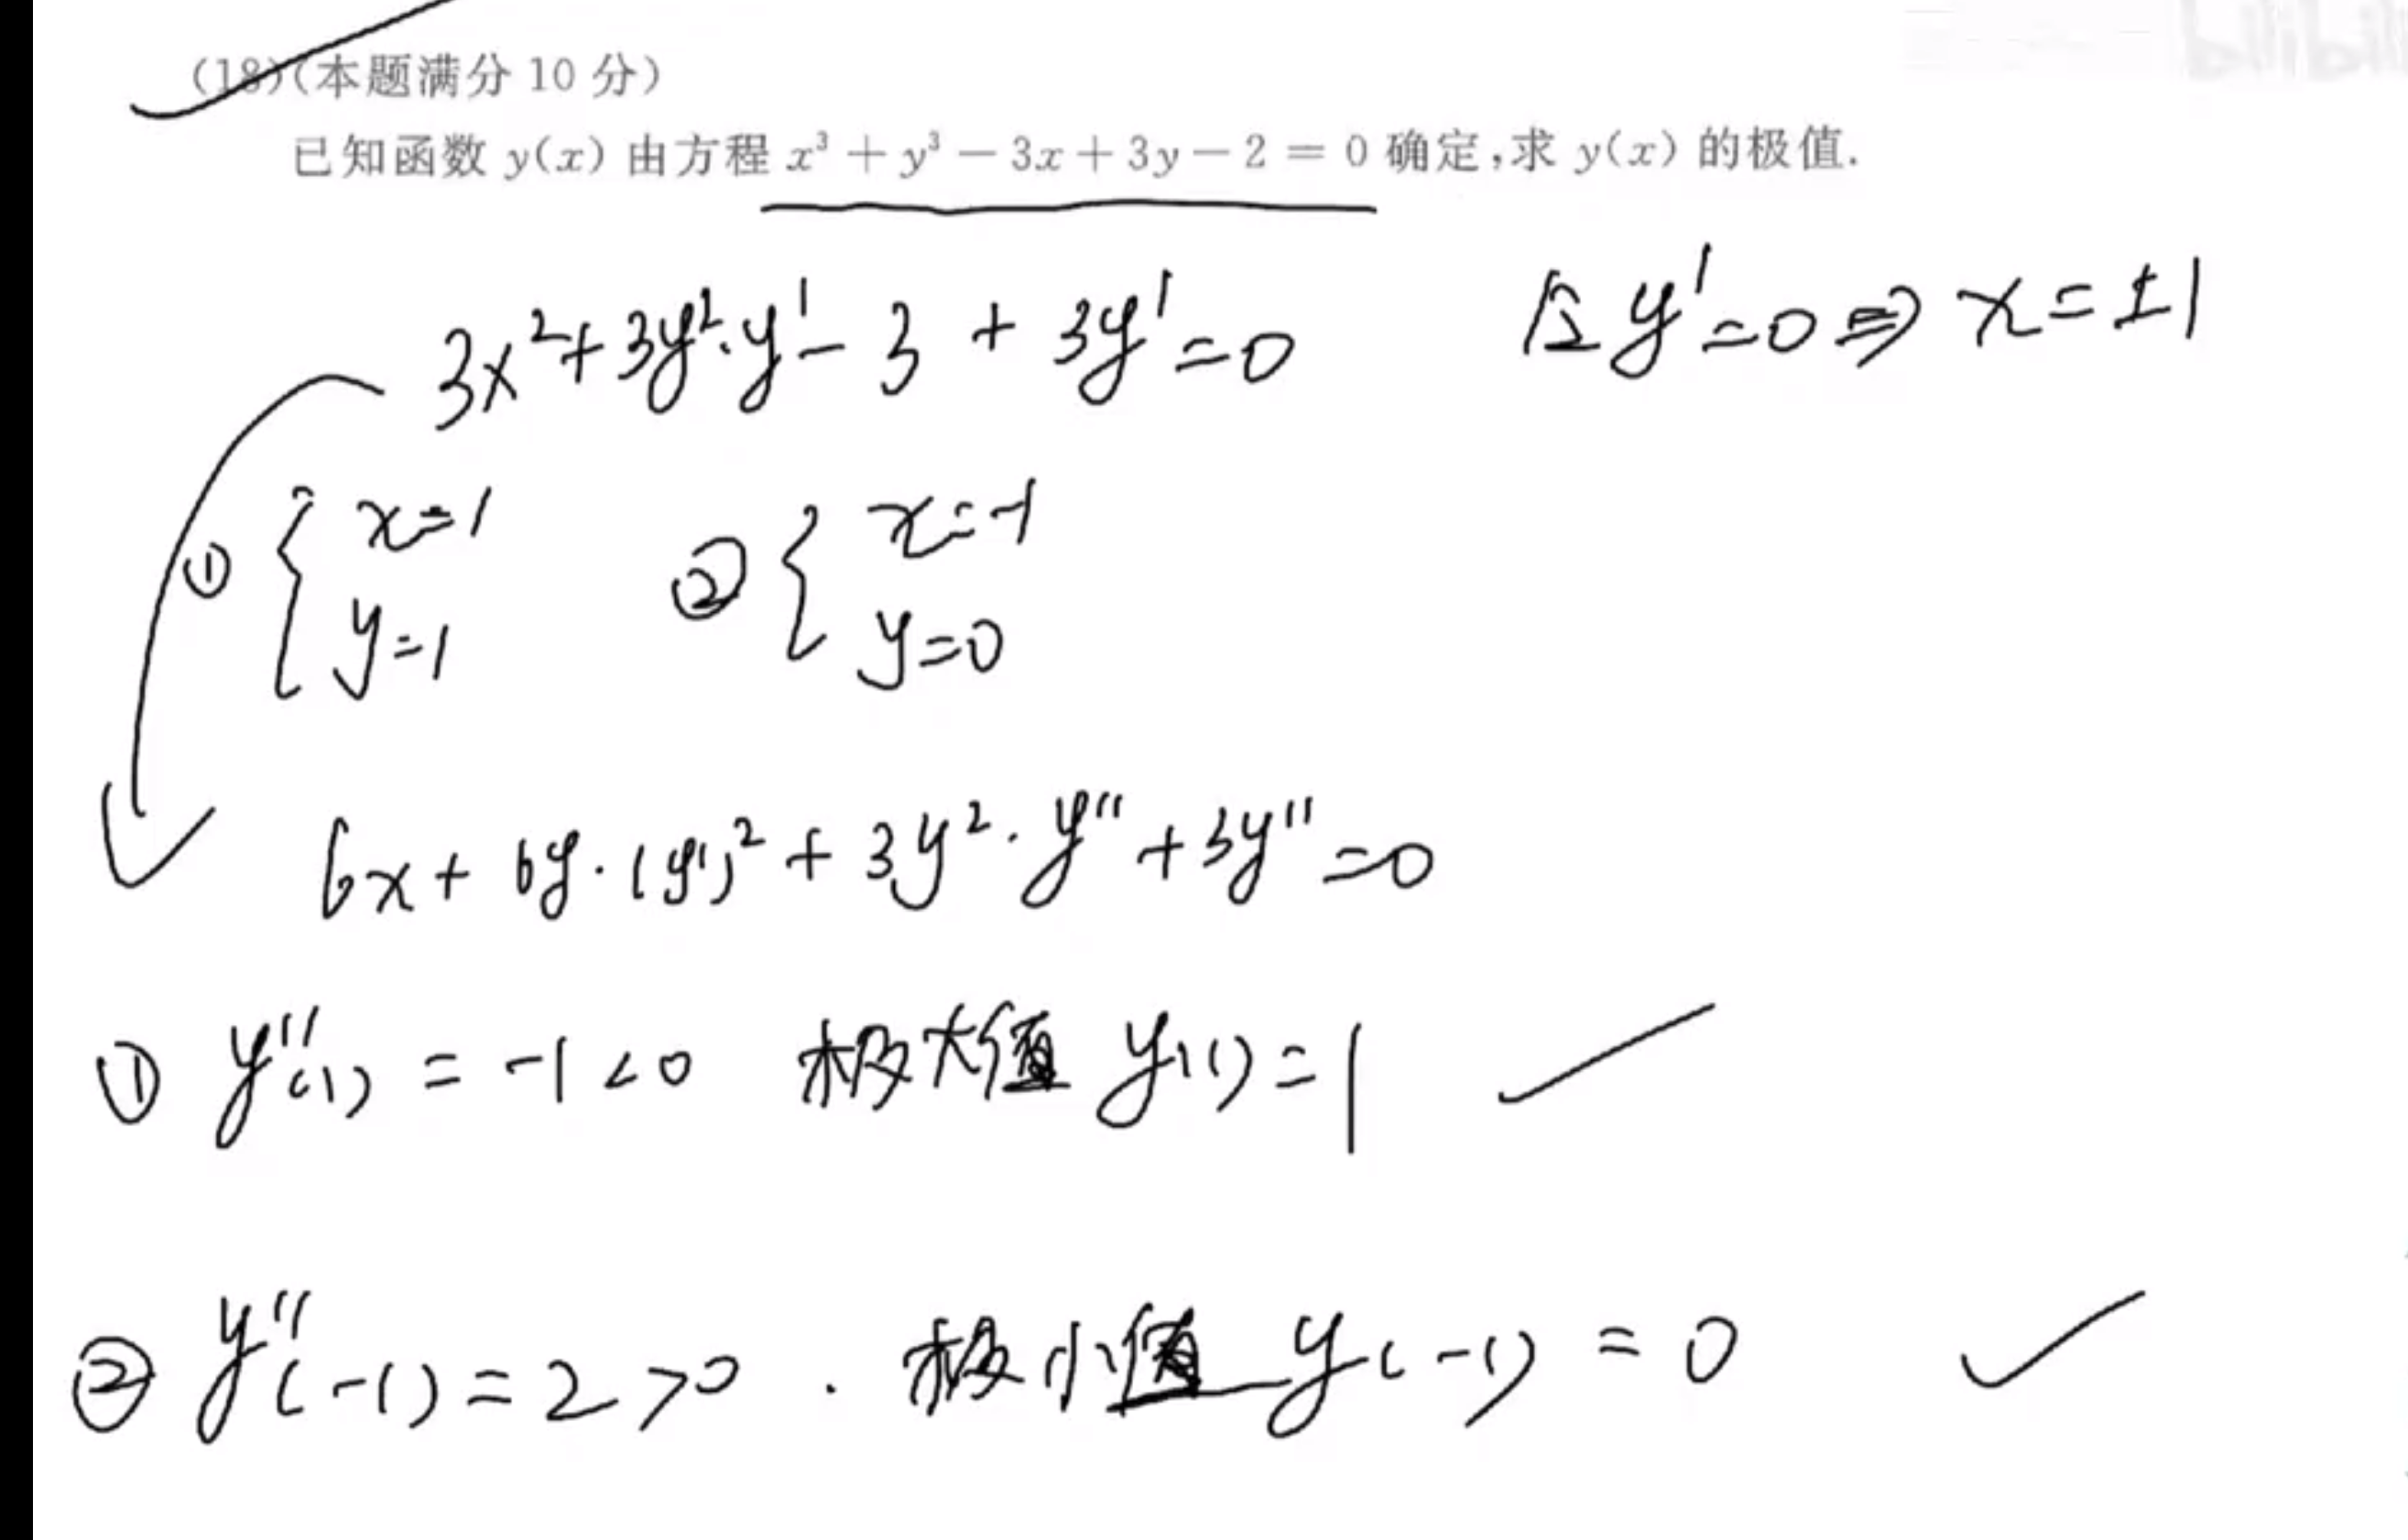 (18)(本题满分 10 分)
已知函数 y(x) 由方程 x³ + y³ − 3x + 3y − 2 = 0 确定,求 y(x) 的极值.
3x² + 3y²·y' − 3 + 3y' = 0 令 y' = 0 ⇒ x = ±1
① { x=1 ② { x=-1
y=1 y=0
6x + 6y·(y')² + 3y²·y'' + 3y'' = 0
① y''(1) = -1 < 0 极大值 y(1) = 1
② y''(-1) = 2 > 0 . 极小值 y(-1) = 0